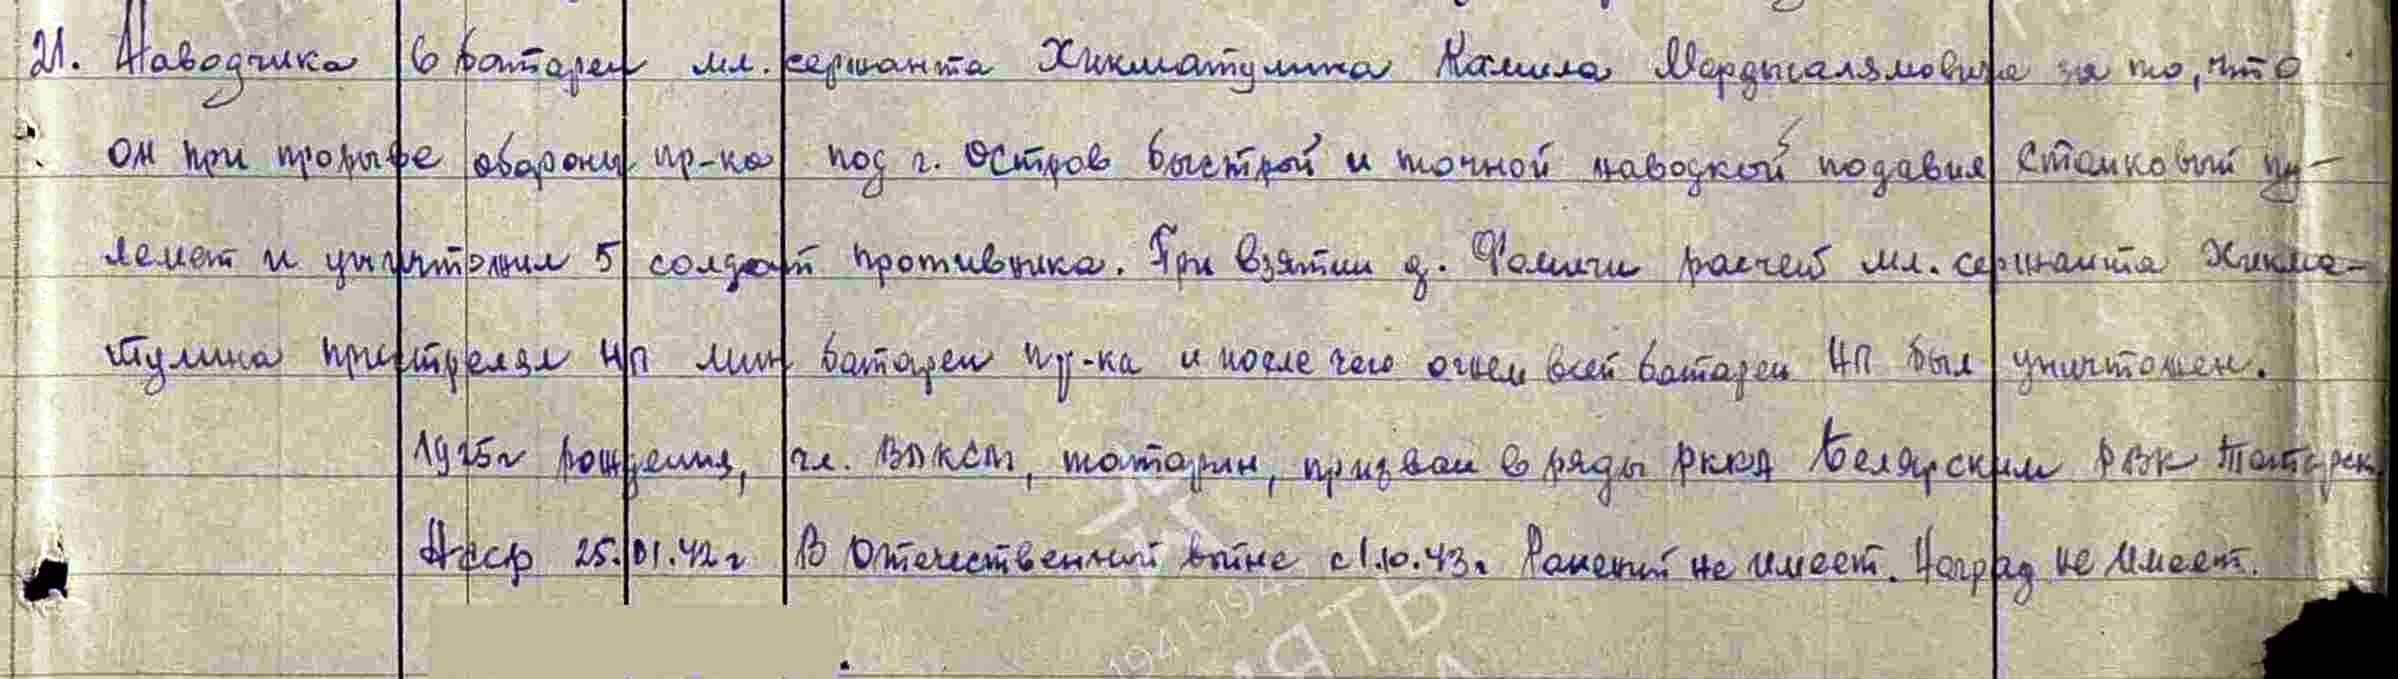 21. Наводчика 6 батареи мл. сержанта Хикматулина Камила Мердыгалямовича за то, что
он при прорыве обороны пр-ка под г. Остров быстрой и точной наводкой подавил станковый пу-
лемет и уничтожил 5 солдат противника. При взятии д. Фомичи расчет мл. сержанта Хикма-
тулина пристрелял НП мин батареи пр-ка и после чего огнем всей батареи НП был уничтожен.
1925г рождения, чл. ВЛКСМ, татарин, призван в ряды РККА Белярским РВК Татарск.
АССР 25.01.42г В Отечественной войне с 1.10.43г Ранений не имеет. Наград не имеет.
1941-194
ЯТЬ